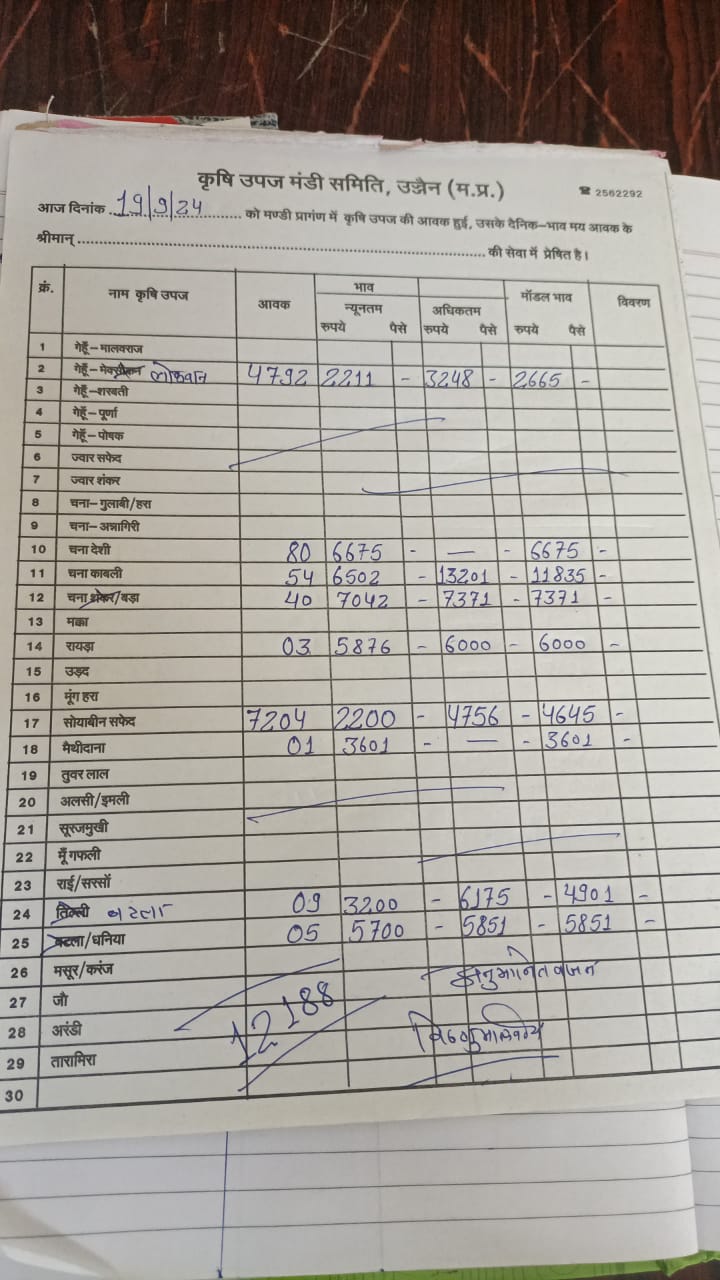 कृषि उपज मंडी समिति, उज्जैन (म.प्र.) ☎ 2562292
आज दिनांक 19/9/24 को मण्डी प्रागंण में कृषि उपज की आवक हुई, उसके दैनिक-भाव मय आवक के
श्रीमान् की सेवा में प्रेषित है।
क्रं. नाम कृषि उपज आवक भाव मॉडल भाव विवरण
न्यूनतम अधिकतम
रुपये पैसे रुपये पैसे रुपये पैसे
1 गेहूँ-मालवराज
2 गेहूँ- लोकवान 4792 2211 - 3248 - 2665 -
3 गेहूँ-शरबती
4 गेहूँ-पूर्णा
5 गेहूँ-पोषक
6 ज्वार सफेद
7 ज्वार शंकर
8 चना-गुलाबी/हरा
9 चना-अन्नागिरी
10 चना देशी 80 6675 - — - 6675 -
11 चना काबली 54 6502 - 13201 - 11835 -
12 चना शंकर/बड़ा 40 7042 - 7371 - 7371 -
13 मक्का
14 रायड़ा 03 5876 - 6000 - 6000 -
15 उड़द
16 मूंग हरा
17 सोयाबीन सफेद 7204 2200 - 4756 - 4645 -
18 मैथीदाना 01 3601 - — - 3601 -
19 तुवर लाल
20 अलसी/इमली
21 सूरजमुखी
22 मूँगफली
23 राई/सरसों
24 तिल्ली बटला 09 3200 - 6175 - 4901 -
25 बटला/धनिया 05 5700 - 5851 - 5851 -
26 मसूर/करंज अनुमानित वजन
27 जौ
12188
28 अरंडी
29 तारामिरा
30